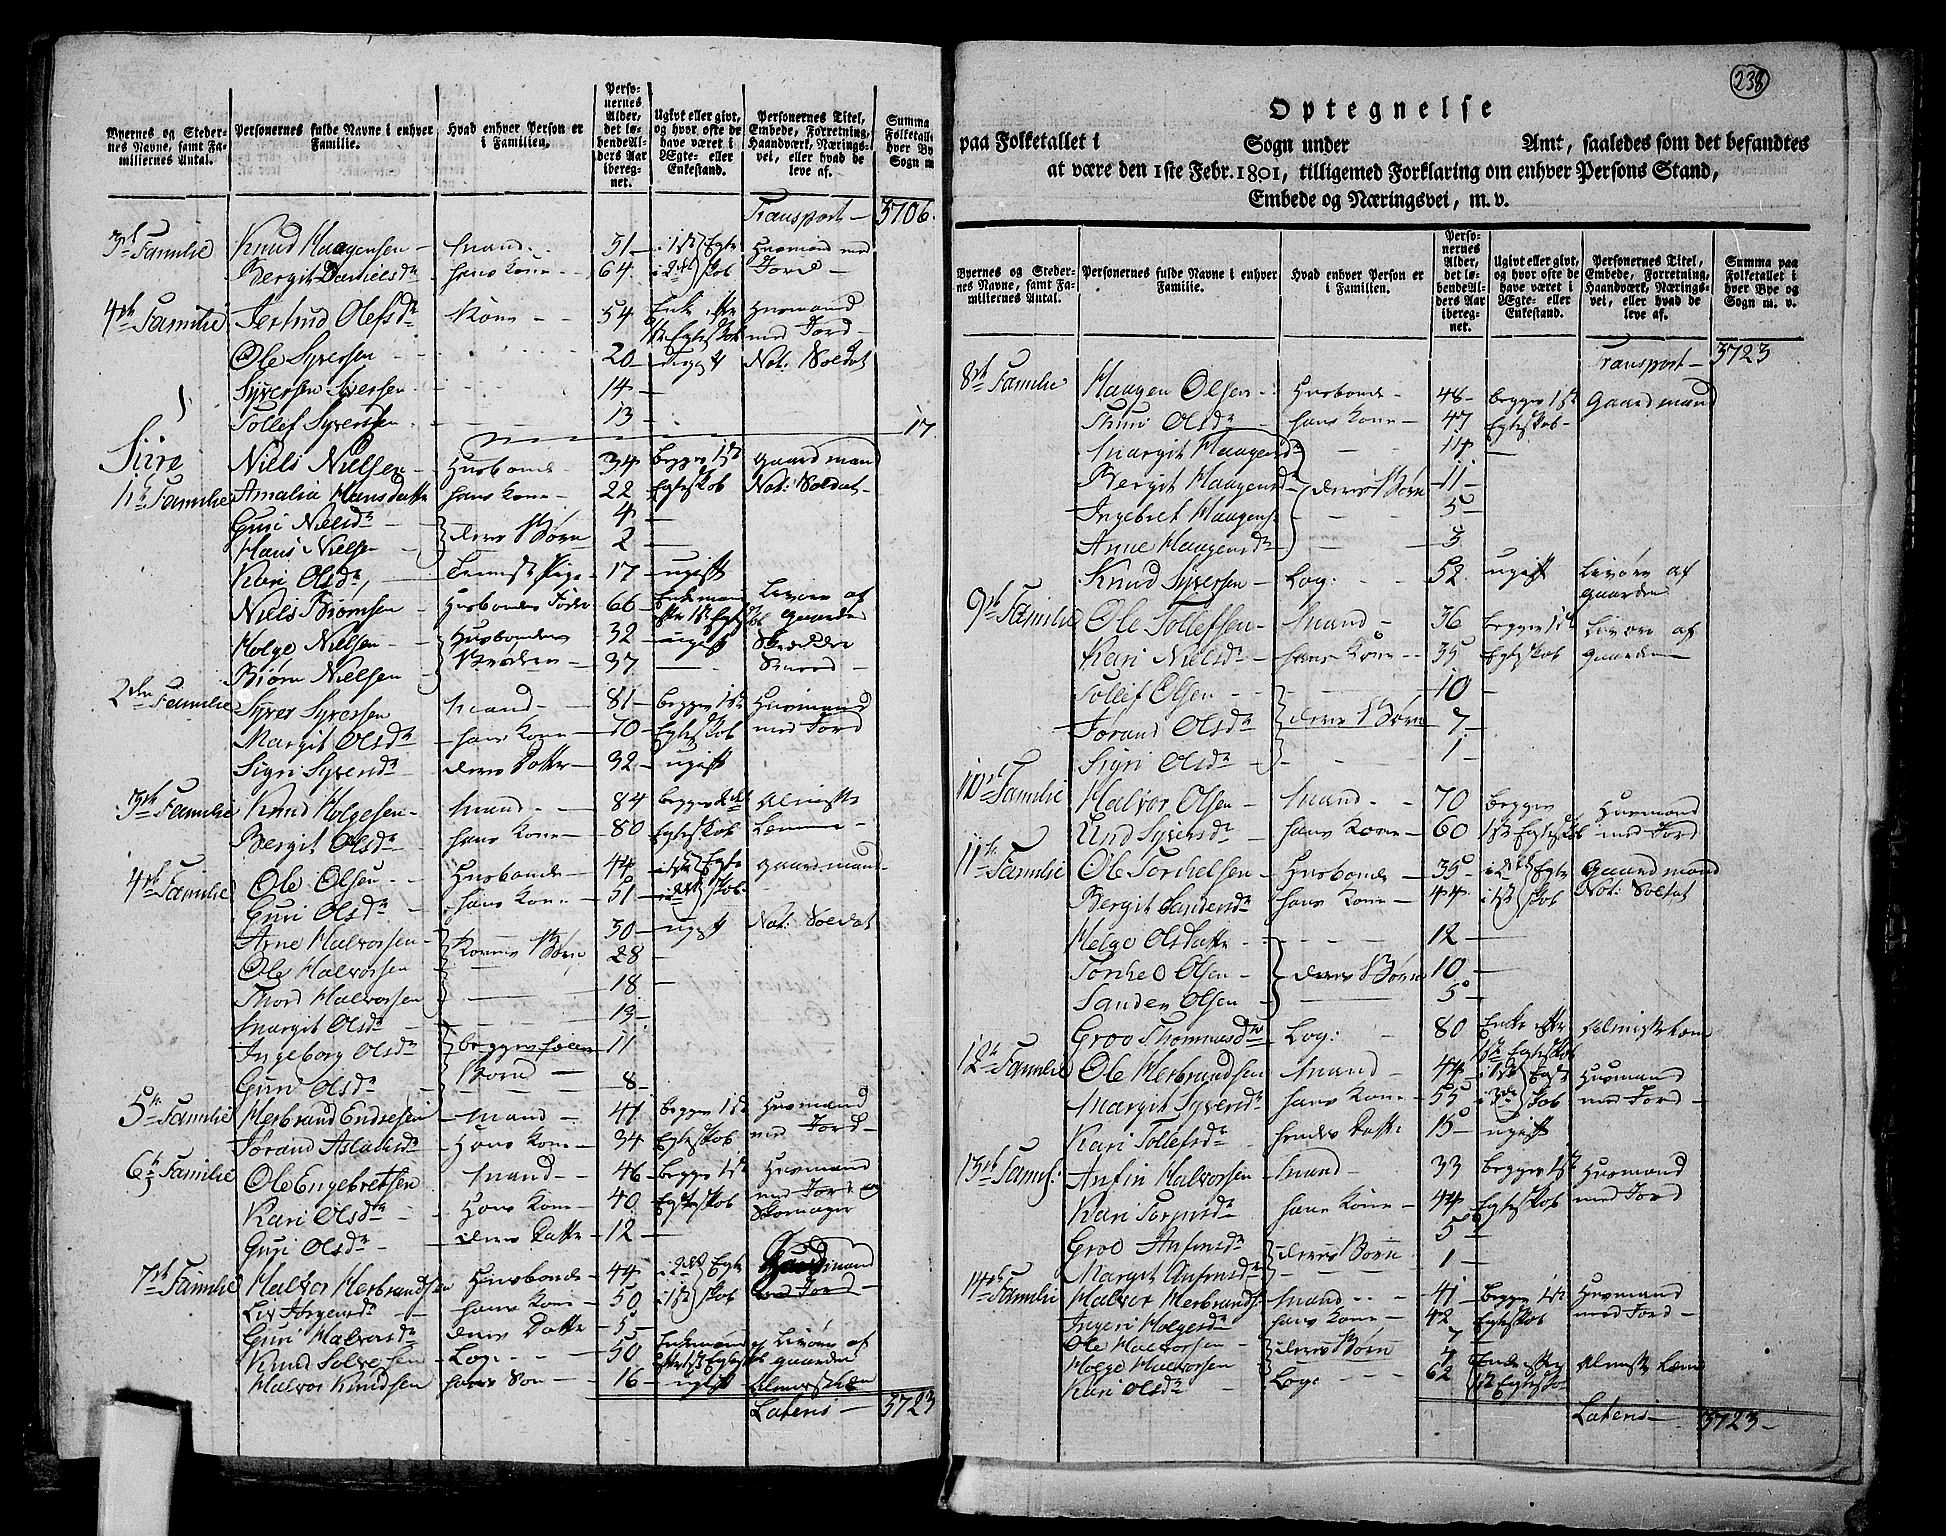 Byernes og Steder-
nes Navne, samt Fa-
miliernes Antal.
Personernes fulde Navne i enhver
Familie.
Hvad enhver Person er
i Familien.
Perso-
nernes
Alder,
det lø-
bende Al-
ders Aar
ibereg-
net.
Ugivt eller givt,
og hvor ofte de
have været i
Ægte- eller
Enkestand.
Personernes Titel,
Embede, Forretning,
Haandværk, Nærings-
vei, eller hvad de
leve af.
Summa
Folketallet
hver By
Sogn m
Transport — 3706.
3de Familie Knud Haagensen — Mand — 51 — i 1ste Egte Husmand med
Bergit Danielsdr hans Kone — 64 — i 2det skab Jord —
4de Familie Jertrud Olefsdr Kone 54 Enke efter Husmand
1ste Egteskab med Jord —
Ole Syversen 20 — ugift Nat: Soldat
Syversen Iversen 14 —
Tollef Syversen 13 —
17.
Siire Niels Nielsen — Husbonde 34 begge 1ste Gaardmand
1te Familie Amalia Hansdatter hans Kone — 22 Egteskab Nat: Soldat —
Guri Nielsdr — deres Børn 4 —
Hans Nielsen 2 —
Kari Olsdr, — Tienest Pige — 17 — ugift
Niels Biørnsen Husbondes Fader 66 — Enkemand Livøre af
efter 1ste Egteskab Gaarden
Holge Nielsen — Husbondens 32 — ugift Skrædder
Biørn Nielsen Brødre — 37 — Smed —
2den Familie Syver Syversen Mand — 81 — begge 1ste Husmand
Margit Olsdr — hans Kone — 70 Egteskab med Jord
Sigri Syversdr — deres Datter — 32 — ugift
3de Familie Knud Holgesen — Mand — 84 begge 2det Almisse
Bergit Olsdr — hans Kone — 80 Egteskab Lemmer —
4de Familie Ole Olsen — Husbonde — 44 — i 1ste Egte Gaardmand
Guri Olsdr — hans Kone — 51 — i 2det skab.
Arne Halvorsen — Konens Børn 30 — ugift Nat: Soldat
Ole Halvorsen 28 —
Thord Halvorsen 18 —
Margit Olsdr 13 —
Ingeborg Olsdr begges fælles 11
Guri Olsdr Børn — 8 —
5te Familie Herbrand Endresen — Mand — 41 begge 1ste Husmand
Jorand Asladsdr — Hans Kone — 34 Egteskab med Jord —
6te Familie Ole Engebretsen — Mand — 46 begge 1ste Husmand
Kari Olsdr — Hans Kone — 40 Egteskab med Jord og
Skomager
Guri Olsdr — deres Datter — 12 —
7de Familie Halvor Herbrandsen Husbonde — 44 i 2det Egte Gaardmand
Liv Torgersdr hans Kone — 50 i 1ste skab med Jord —
Guri Halvorsdr — deres Datter — 5 —
Knud Solvesen — Loge — 50 Enkemand Livøre af
efter 1ste Egteskab Gaarden
Halvor Knudsen hans Søn — 16 — ugift Almisselem
Lateris — 3723
238
Optegnelse
paa Folketallet i Sogn under Amt, saaledes som det befandtes
at være den 1ste Febr. 1801, tilligemed Forklaring om enhver Persons Stand,
Embede og Næringsvei, m. v.
Byernes og Steder-
nes Navne, samt Fa-
miliernes Antal.
Personernes fulde Navne i enhver
Familie.
Hvad enhver Person er
i Familien.
Perso-
nernes
Alder,
det lø-
bende Al-
ders Aar
ibereg-
net.
Ugivt eller givt,
og hvor ofte de
have været i
Ægte- eller
Enkestand.
Personernes Titel,
Embede, Forretning,
Haandværk, Nærings-
vei, eller hvad de
leve af.
Summa paa
Folketallet i
hver Bye og
Sogn m. v.
Transport — 3723
8de Familie Haagen Olsen — Husbonde — 48 — begge 1ste Gaardmand
Thuri Olsdr — hans Kone — 47 Egteskab —
Margit Haagensdr 14 —
Bergit Haagensdr — deres Børn — 11 —
Ingebret Haagens. 5 —
Anne Haagensdr 3
Knud Syversen — Log: 52. ugift Livøre af
Gaarden
9de Familie Ole Tollefsen — Mand — 36 begge 1ste Livøre af
Kari Nielsdr — hans Kone — 35 Egteskab Gaarden —
Tollef Olsen — 10 —
Jorand Olsdr deres Børn — 7 —
Sigri Olsdr 1 —
10de Familie Halvor Olsen — Mand — 70 begge Husmand
Und Syversdr hans Kone — 60 1ste Egteskab med Jord
11te Familie Ole Torchelsen — Husbonde — 35 i 2det Egte Gaardmand
Bergit Sandersdr hans Kone — 44 — i 1ste skab Nat: Soldat
Helge Olsdatter — 12 —
Torchel Olsen — deres Børn 10 —
Sanden Olsen — 5 —
Groo Thommasdr — Log: 80 Enke efter Almisselem
1ste Egteskab
12te Familie Ole Herbrandsen Mand — 44 — i 1ste Egte Husmand
Margit Syversdr hans Kone — 55 i 3de skab med Jord —
Kari Tollefsdr hendes Datter 15 — ugift
13de Famil: Anfin Halvorsen Mand — 33 begge 1ste Husmand
Kari Torgersdr hans Kone — 44 Egteskab med Jord
Groe Anfinsdr deres Børn 5 —
Margit Anfinsdr 1 —
14de Familie Halvor Herbrands. Mand — 41 — begge 1ste Husmand
Ingeri Holgesdr hans Kone — 42 Egteskab med Jord —
Ole Halvorsen — deres Børn 7 —
Holge Halvorsen 4
Kari Olsdr — Loge — 62 Enke efter Almisse Lem
1ste Egteskab
Lateris — 3723 —